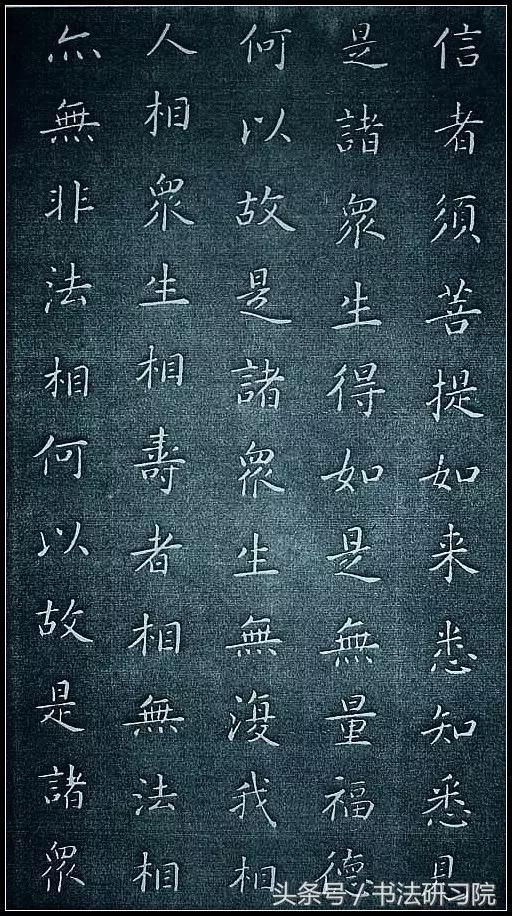 信者須菩提如来悉知悉見
是諸眾生得如是無量福德
何以故是諸眾生無復我相
人相眾生相壽者相無法相
亦無非法相何以故是諸眾
头条号／书法研习院